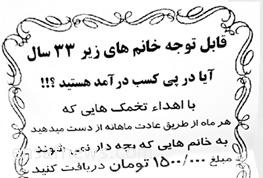 قابل توجه خانم های زیر ۳۳ سال
آیا در پی کسب درآمد هستید ؟!!
با اهداء تخمک هایی که
هر ماه از طریق عادت ماهانه از دست میدهید
به خانم هایی که بچه دار نمی شوند
مبلغ ۱۵۰۰/۰۰۰ تومان دریافت کنید